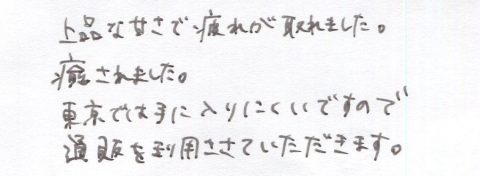 上品な甘さで疲れが取れました。
癒されました。
東京では手に入りにくいですので
通販を利用させていただきます。